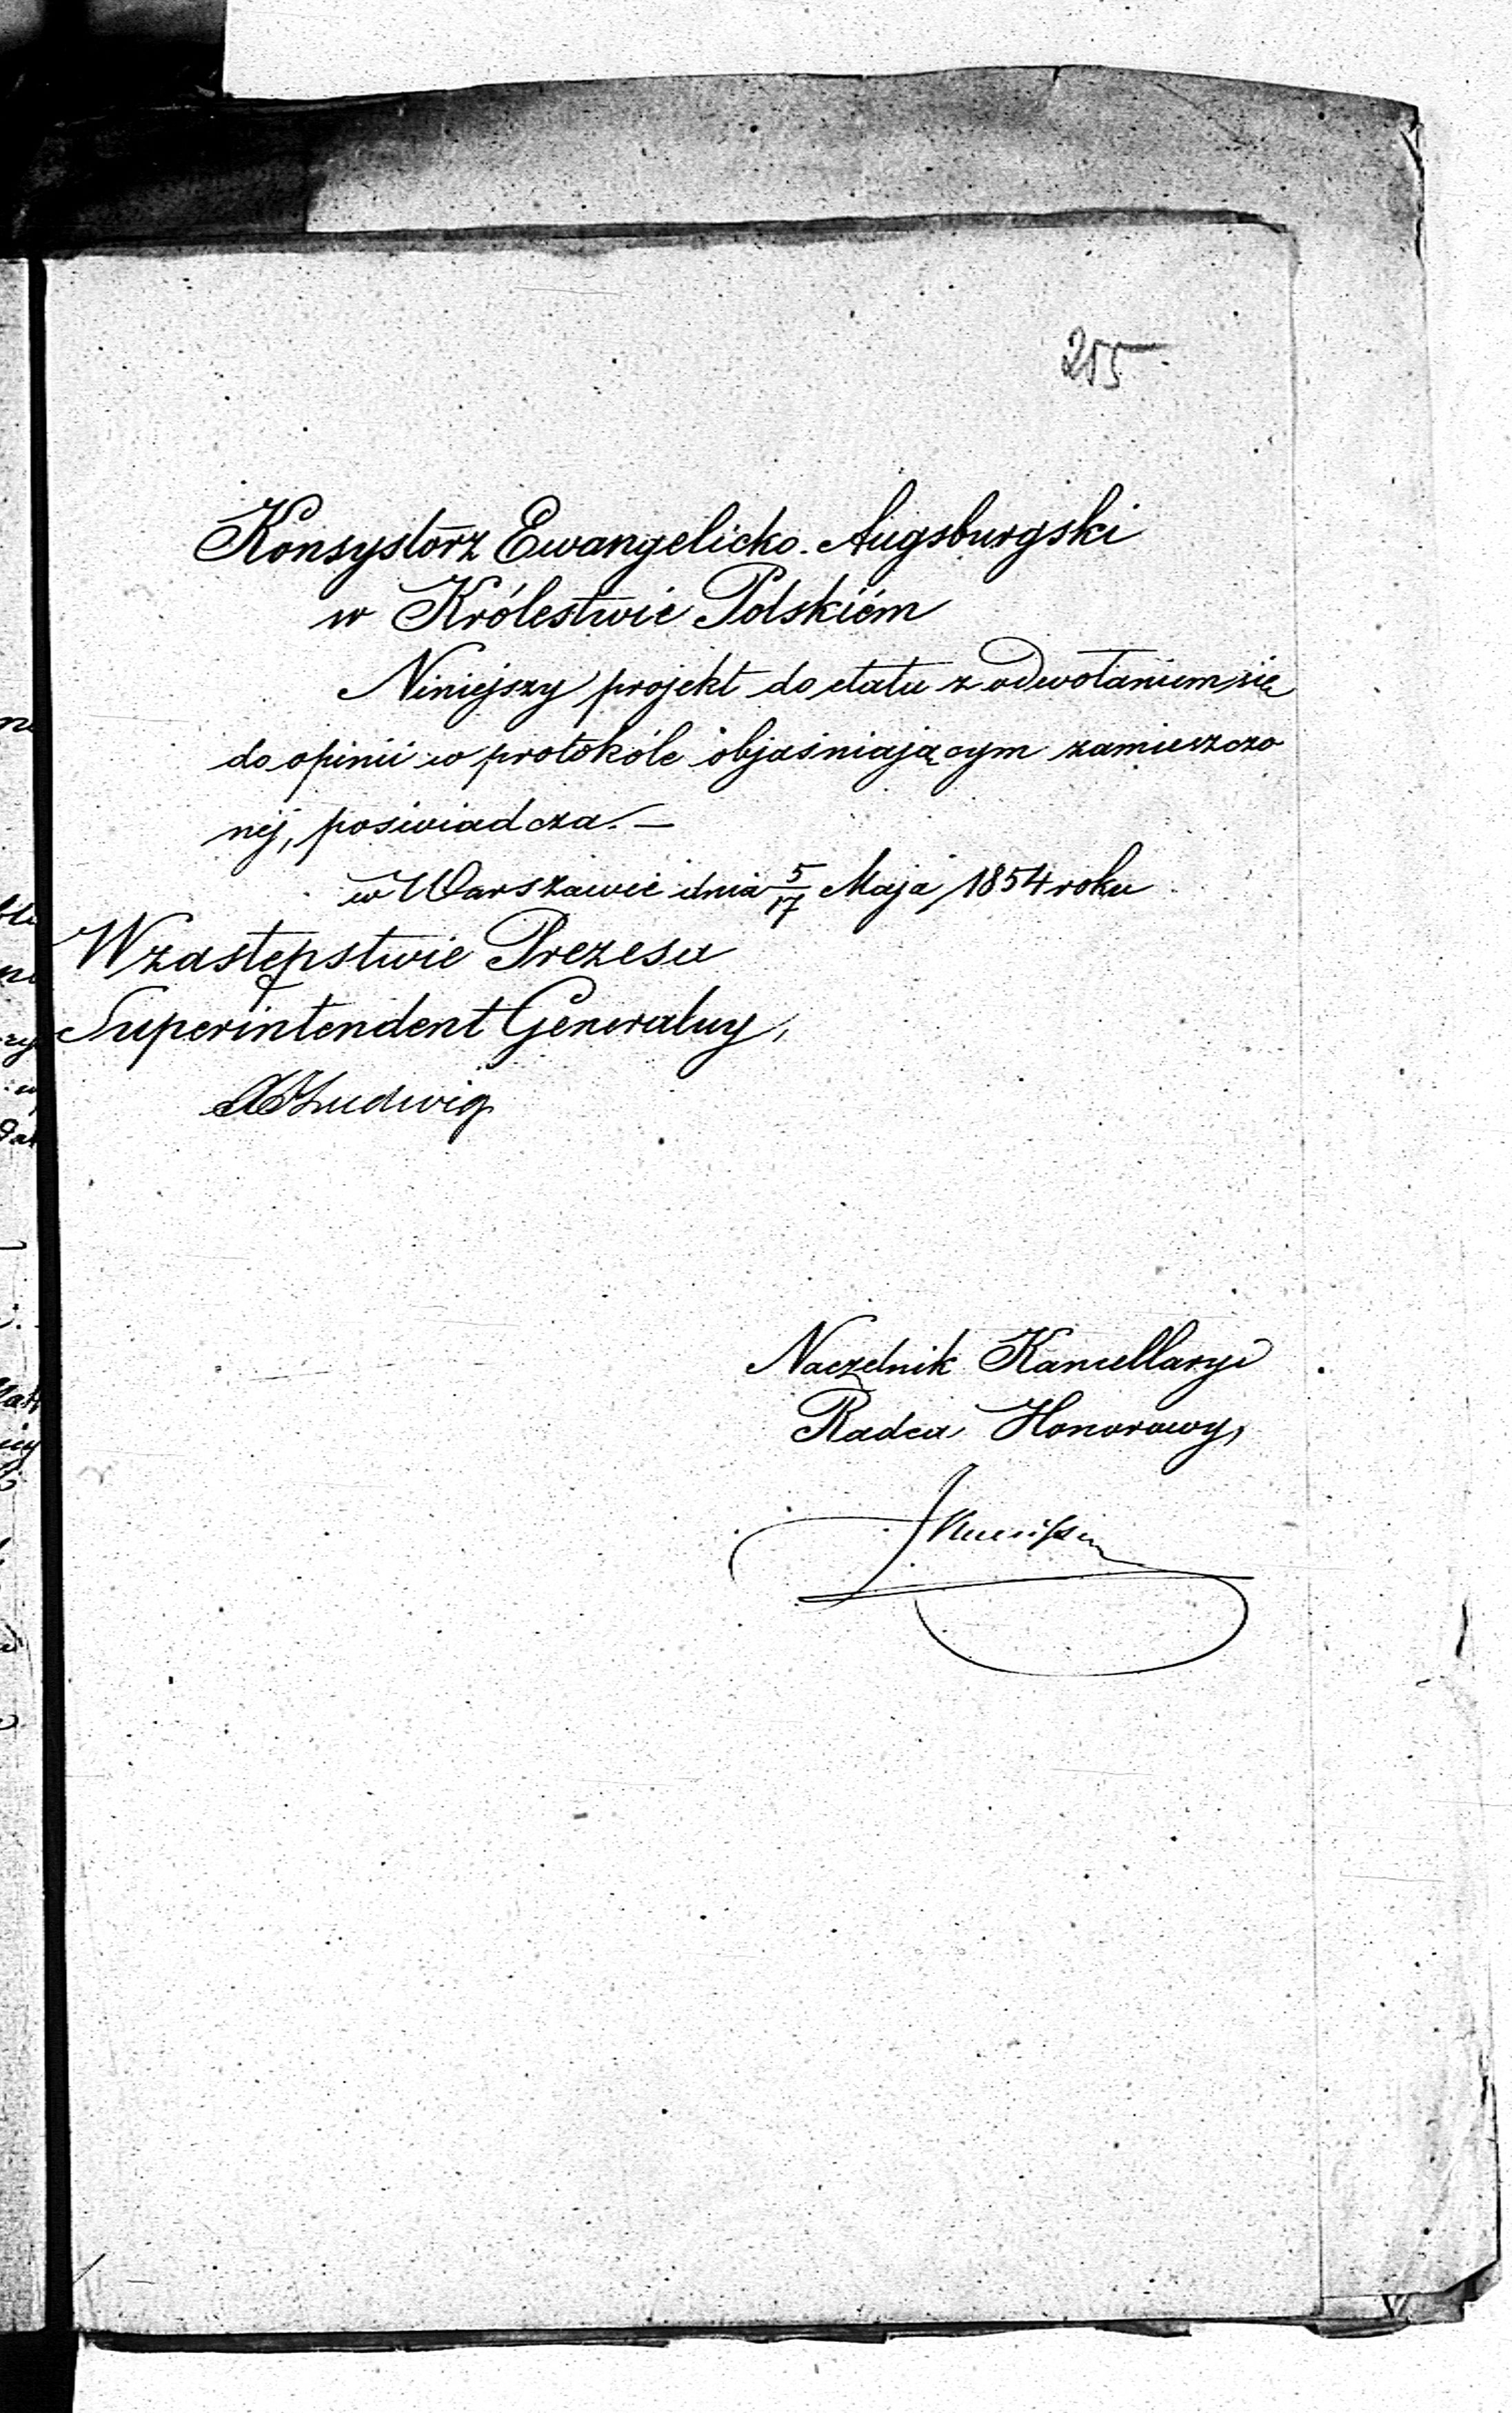 255
Konsystorz Ewangelicko-Augsburgski
w Królestwie Polskiém
Niniejszy projekt do etatu z odwołaniem się
do opinii w protokóle objaśniającym zamieszczo
néj, poświadcza. —
w Warszawie dnia 5/17 Maja 1854 roku
W zastępstwie Prezesa
Superintendent Generalny,
Ludwig
Naczelnik Kancellaryi
Radca Honorowy,